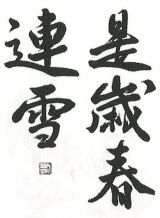 是歲春
連雪